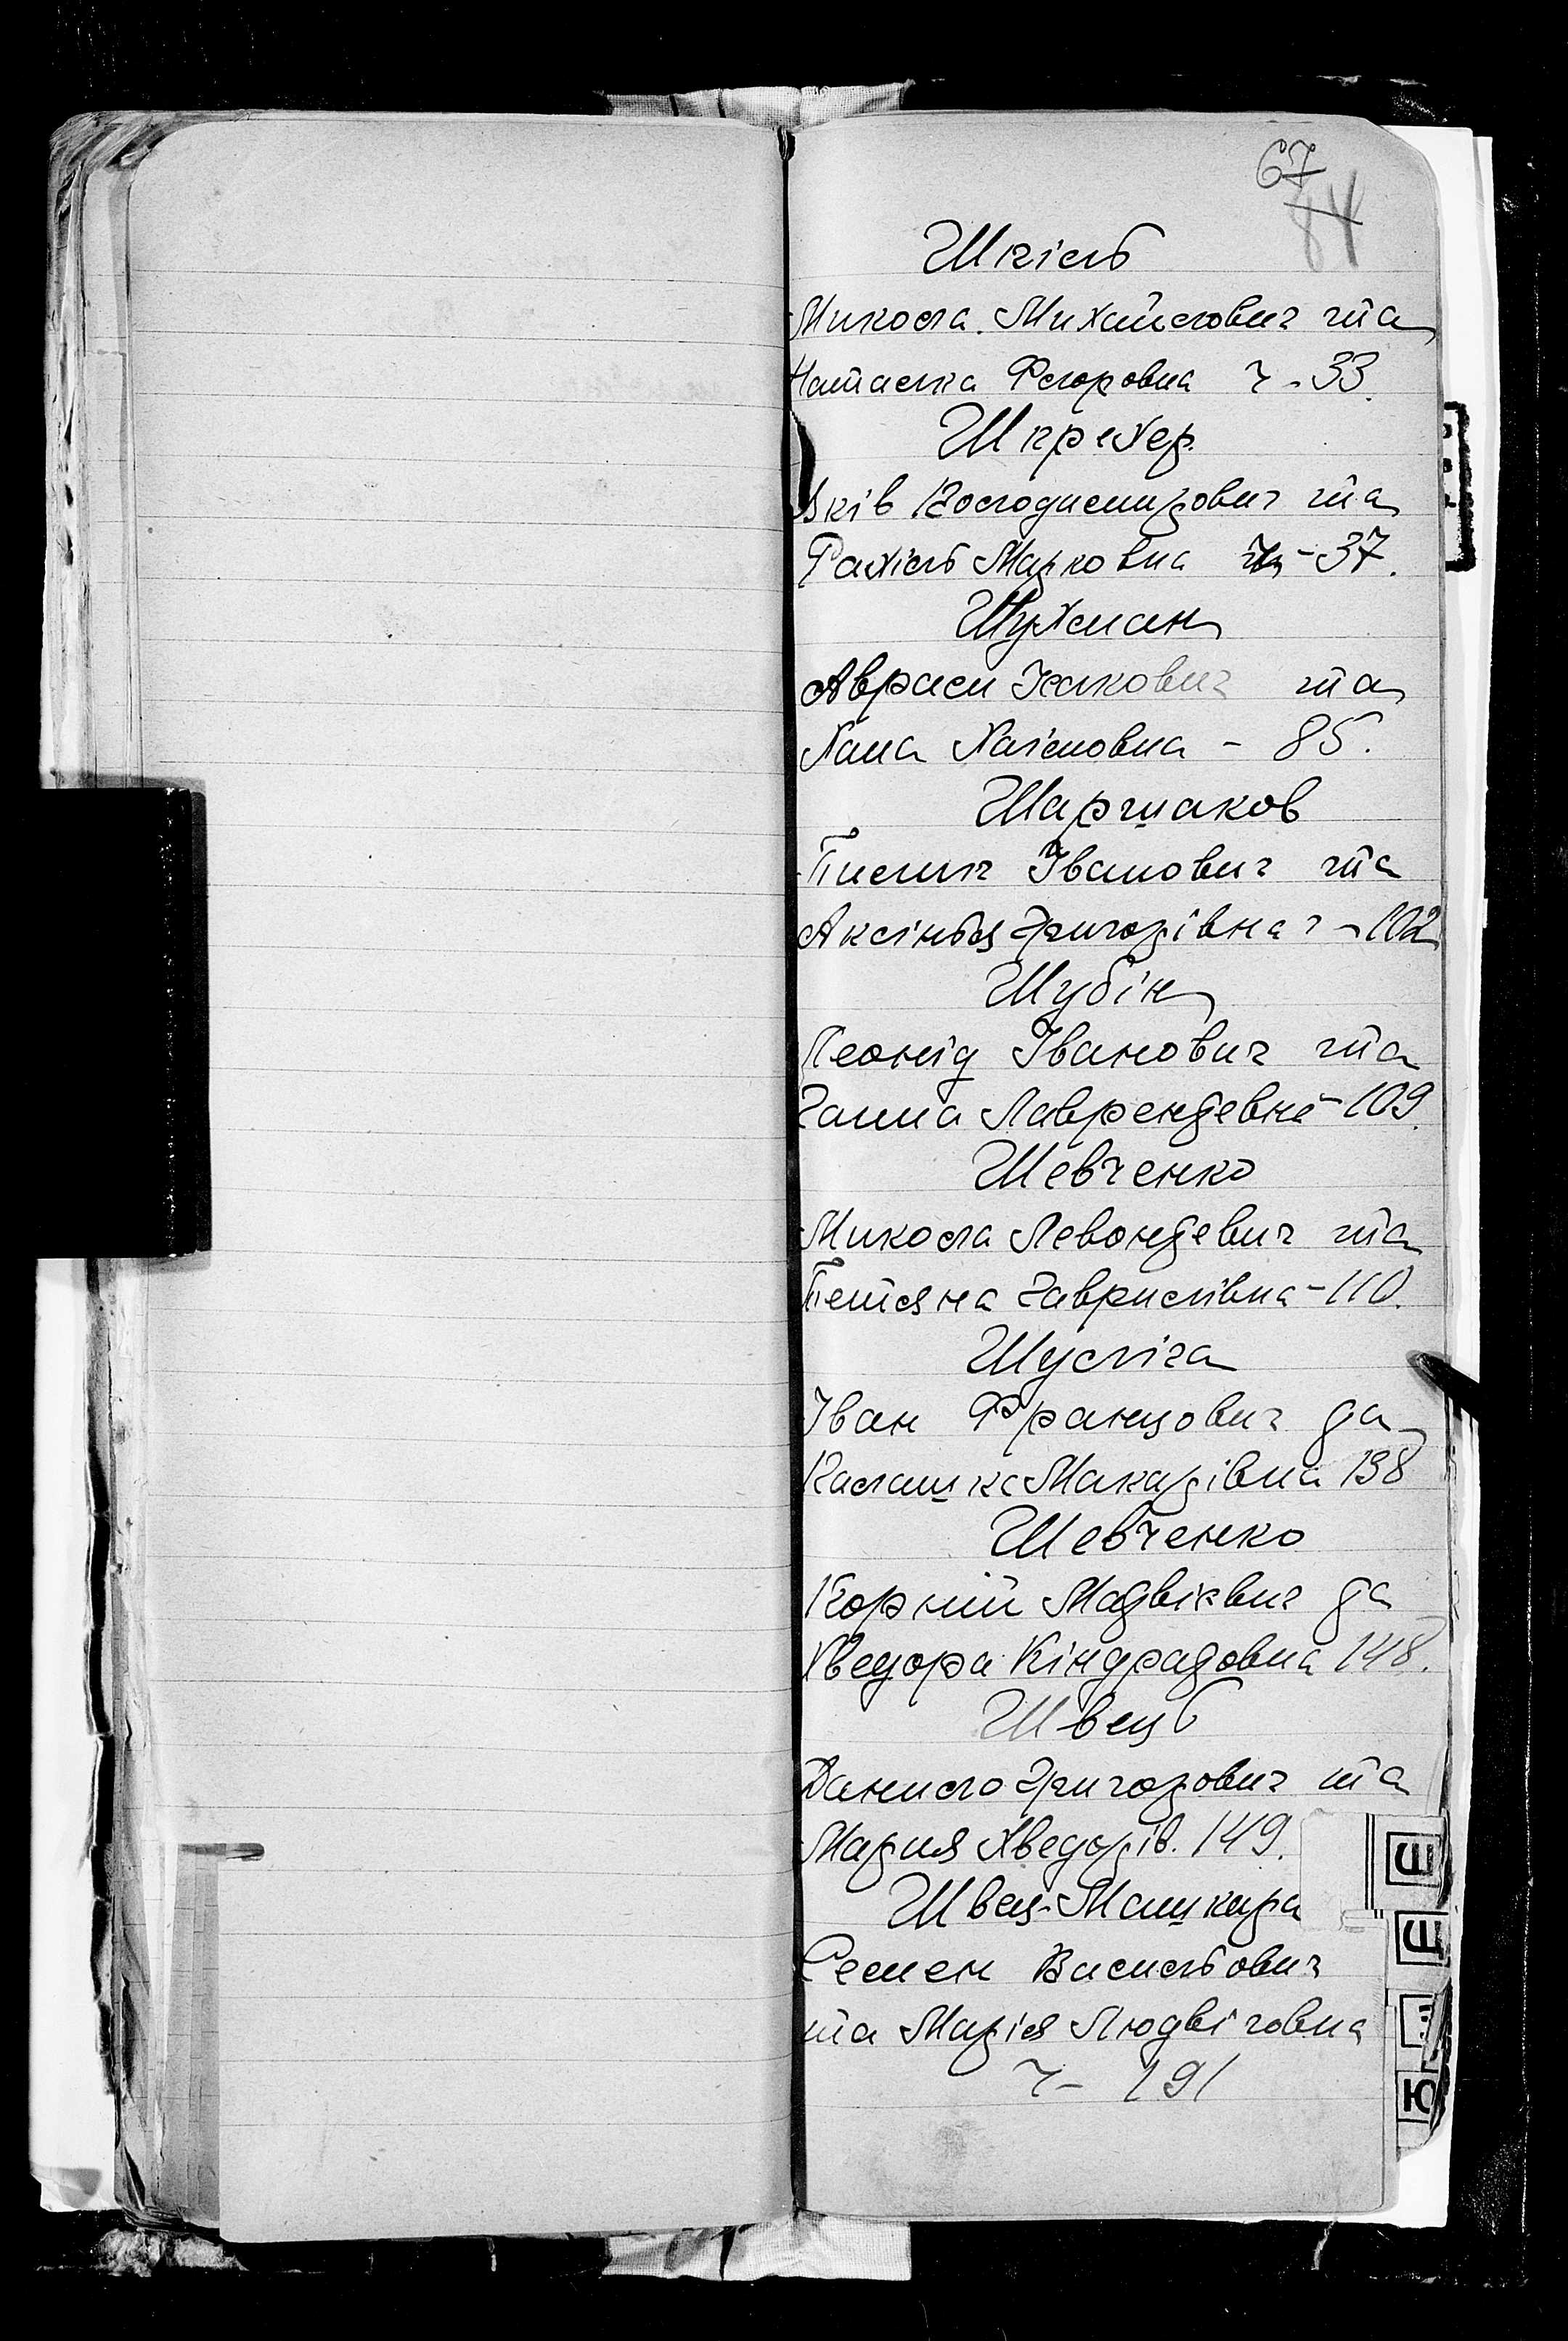 67
84
Шкіль
Микола Михайлович та
Наталка Фєоровна ч - 33.
Шкрехер
Яків Володимирович та
Рахіль Марковна ч - 37.
Шухман
Аврам Ісакович та
Хана Хаімовна - 85.
Шаршаков
Пилип Іванович та
Аксінья Григорівна ч - 102
Шубін
Леонід Іванович та
Ганна Лаврентевна - 109.
Шевченко
Микола Левонтевич та
Тетяна Гаврилівна - 110.
Шуліга
Іван Францович та
Калашка Макарівна 138
Шевченко
Корній Матвієвич та
Хведора Кіндратовна 148.
Швець
Данило Григорович та
Мария Хведорів. 149.
Швец-Машкара
Семен Васильович
та Марія Людвіговна
ч - 191
Ш
Щ
Ю